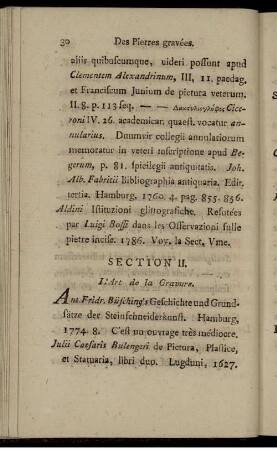 30 Des Pierres gravées.
aliis quibuscumque, uideri possunt apud
Clementem Alexandrinum, III, 11. paedag.
et Franciscum Junium de pictura veterum.
II. 8. p. 113 seq. — — Δακτυλιογλύφος Cice-
roni IV. 26. academicar. quaest. vocatur an-
nularius. Duumvir collegii annulariorum
memoratur in veteri inscriptione apud Be-
gerum, p. 81. spicilegii antiquitatis. Joh.
Alb. Fabritii Bibliographia antiquaria. Edit.
tertia. Hamburg, 1760. 4. pag. 855. 856.
Aldini Istituzioni glittografiche. Refutées
par Luigi Bossi dans les Osservazioni sulle
pietre incise. 1786. Voy. la Sect. Vme.
SECTION II.
L'Art de la Gravure.
Ant. Fridr. Büsching's Geschichte und Grund-
sätze der Steinschneiderkunst. Hamburg,
1774. 8. C'est un ouvrage très médiocre.
Julii Caesaris Bulengeri de Pictura, Plastice,
et Statuaria, libri duo. Lugduni, 1627.